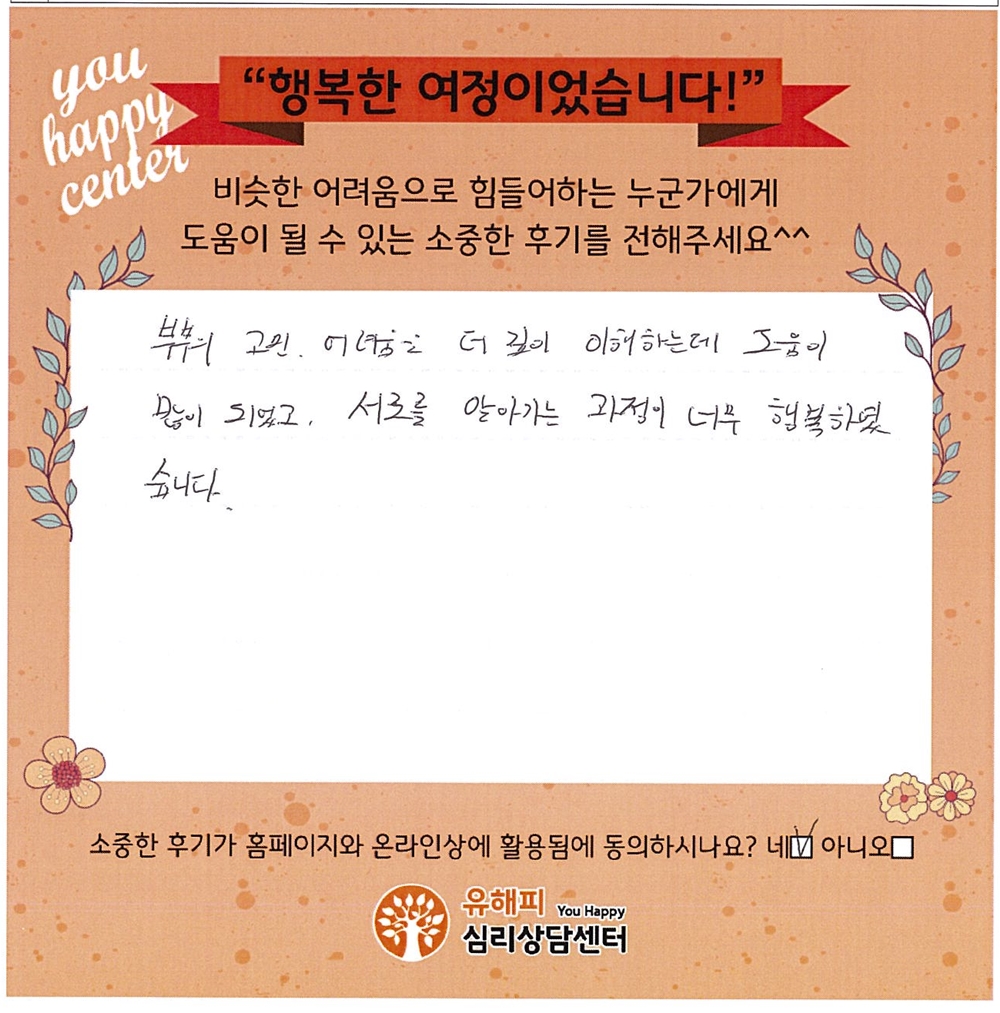 you
happy
center
“행복한 여정이었습니다!”
비슷한 어려움으로 힘들어하는 누군가에게
도움이 될 수 있는 소중한 후기를 전해주세요^^
부부의 고민. 어려움을 더 깊이 이해하는데 도움이
많이 되었고, 서로를 알아가는 과정이 너무 행복하였
습니다.
소중한 후기가 홈페이지와 온라인상에 활용됨에 동의하시나요? 네☑ 아니오☐
유해피 You Happy
심리상담센터